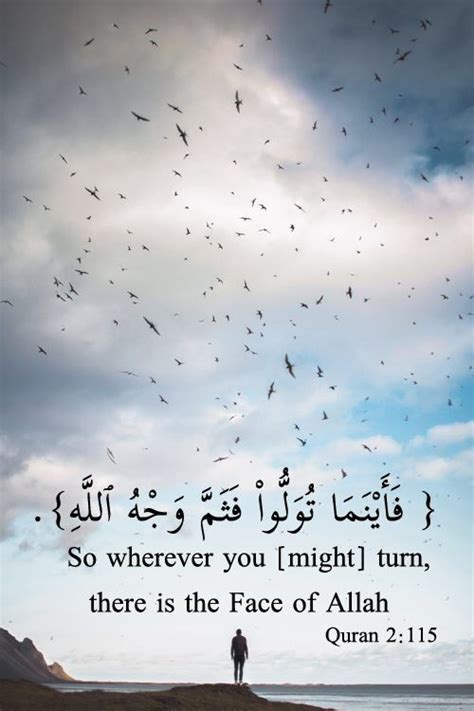 { فَأَيْنَمَا تُوَلُّوا۟ فَثَمَّ وَجْهُ ٱللَّهِ}.
So wherever you [might] turn,
there is the Face of Allah
Quran 2:115